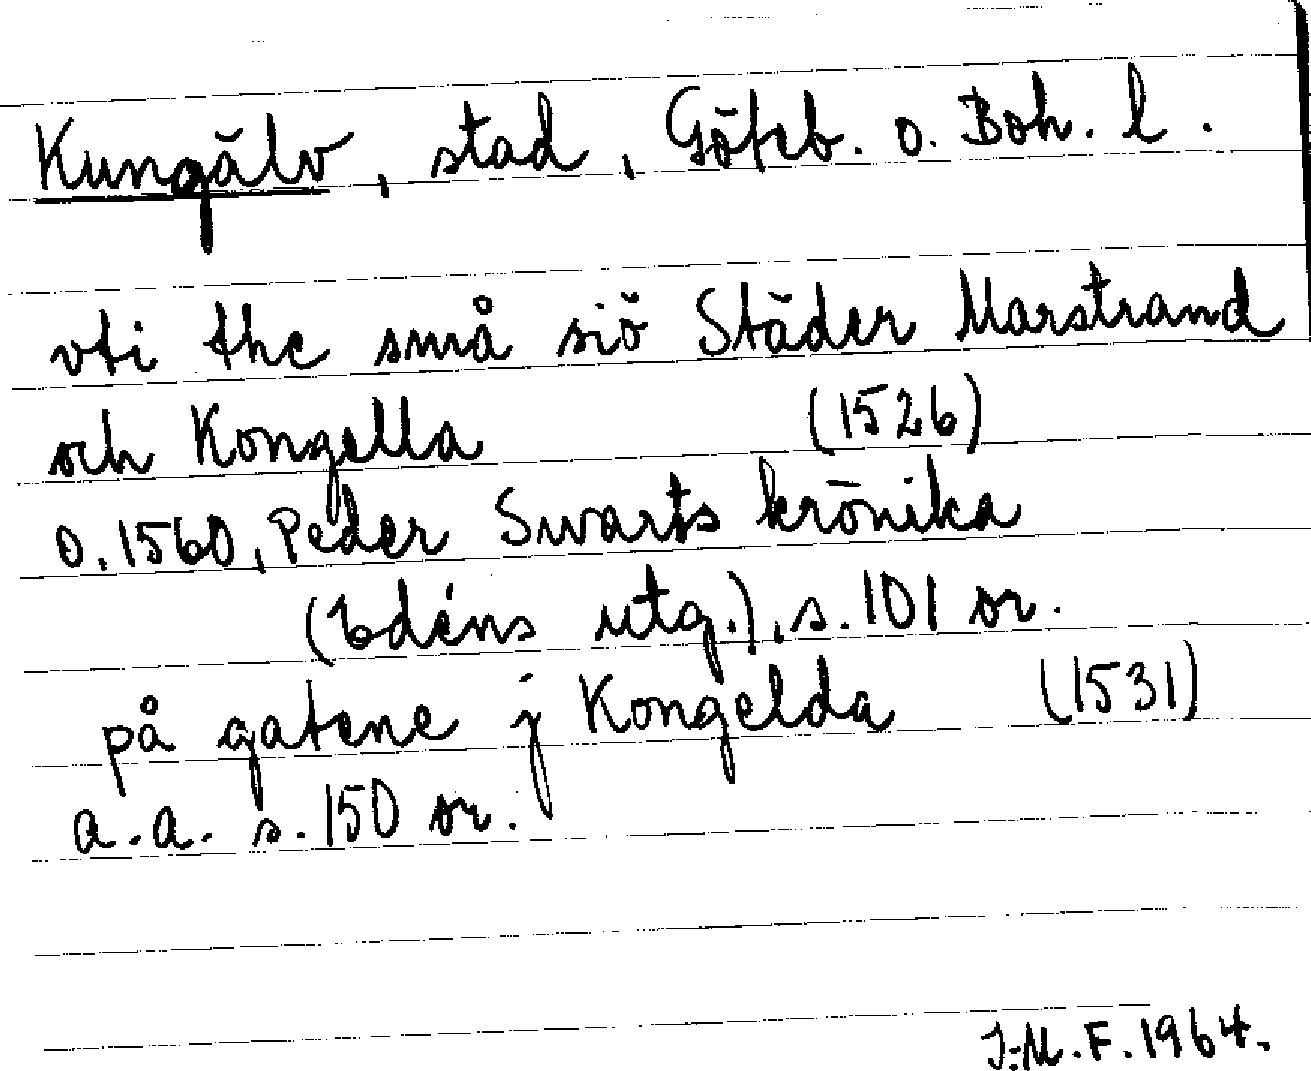 Kungälv, stad, Göteb. o. Boh. l.
vti the små siö Städer Marstrand
och Kongella (1526)
o. 1560, Peder Swarts krönika
(Edéns utg.), s. 101 or.
på gatene j Kongelda (1531)
a.a. s. 150 or.
I:M.F. 1964.